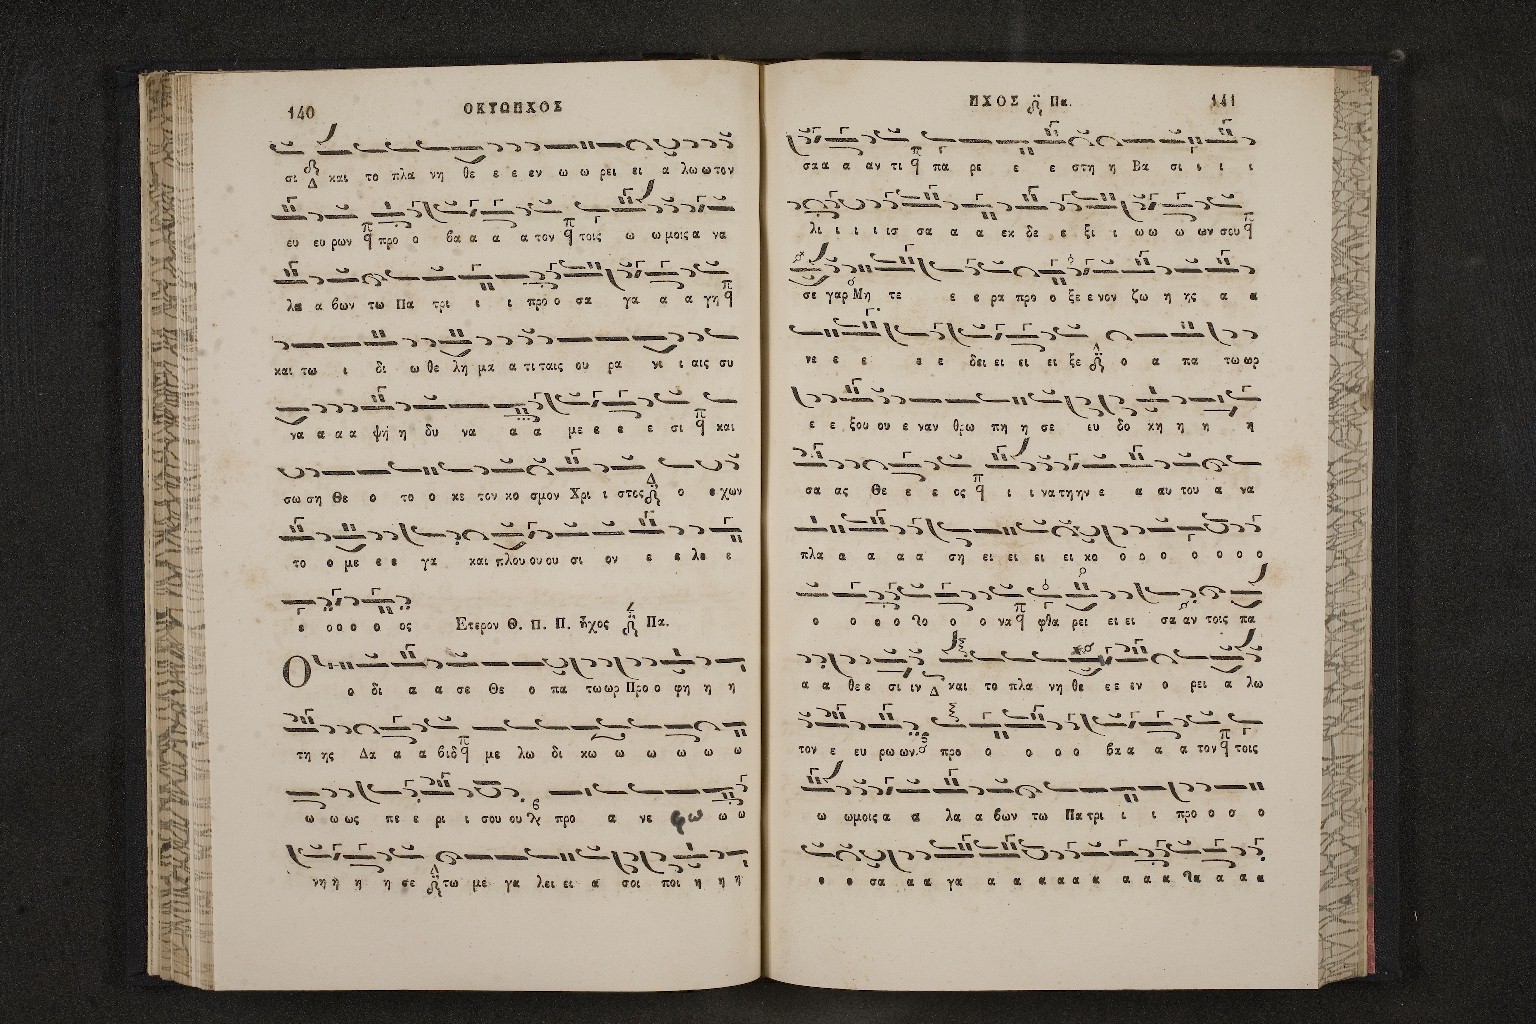 140 ΟΚΤΩΗΧΟΣ
σι Δ και το πλα νη θε ε ε εν ω ω ρει ει α λω ω τον
ευ ευ ρων π q προ ο βα α α α τον π q τοις ω ω μοις α να
λα α βων τω Πα τρι ι ι προ ο σα γα α α γη π q
και τω ι δι ω θε λη μα α τι ταις ου ρα νι ι αις συ
να α α α ψη η δυ να α α με ε ε ε σι π q και
σω ση Θε ο το ο κε τον κο σμον Χρι ι στος Δ ο ε χων
το ο με ε ε γα και πλου ου ου σι ον ε ε λε ε
ε ο ο ο ο ος Ετερον Θ. Π. Π. ἦχος Πα.
Ο ο δι α α σε Θε ο πα τω ωρ Προ ο φη η η
τη ης Δα α α βιδ π q με λω δι κω ω ω ω ω ω
ω ω ως πε ε ρι ι σου ου προ α νε φω ω ω
νη η η η σε τω με γα λει ει α σοι ποι η η η
ΗΧΟΣ Πα. 141
σα α α αν τι π q πα ρε ε ε στη η Βα σι ι ι ι
λι ι ι ι ισ σα α α εκ δε ε ξι ι ω ω ω ων σου π q
σε γαρ Μη τε ε ε ρα προ ο ξε ε νον ζω η ης α α
νε ε ε ε ε δει ει ει ει ξε ο α πα τω ωρ
ε ε ξου ου ε ναν θρω πη η σε ευ δο κη η η η
σα ας Θε ε ε ος π q ι ι να την η ε α αυ του α να
πλα α α α α ση ει ει ει ει κο ο ο ο ο ο ο ο
ο ο ο ο το ο ο να π q φθα ρει ει ει σα αν τοις πα
α α θε ε σι ιν Δ και το πλα νη θε ε ε εν ο ρει α λω
τον ε ευ ρω ων προ ο ο ο ο βα α α α τον π q τοις
ω ω μοις α α λα α βων τω Πα τρι ι ι προ ο σ ο
ο ο σα α α γα α α α α α α α α α γα α α α